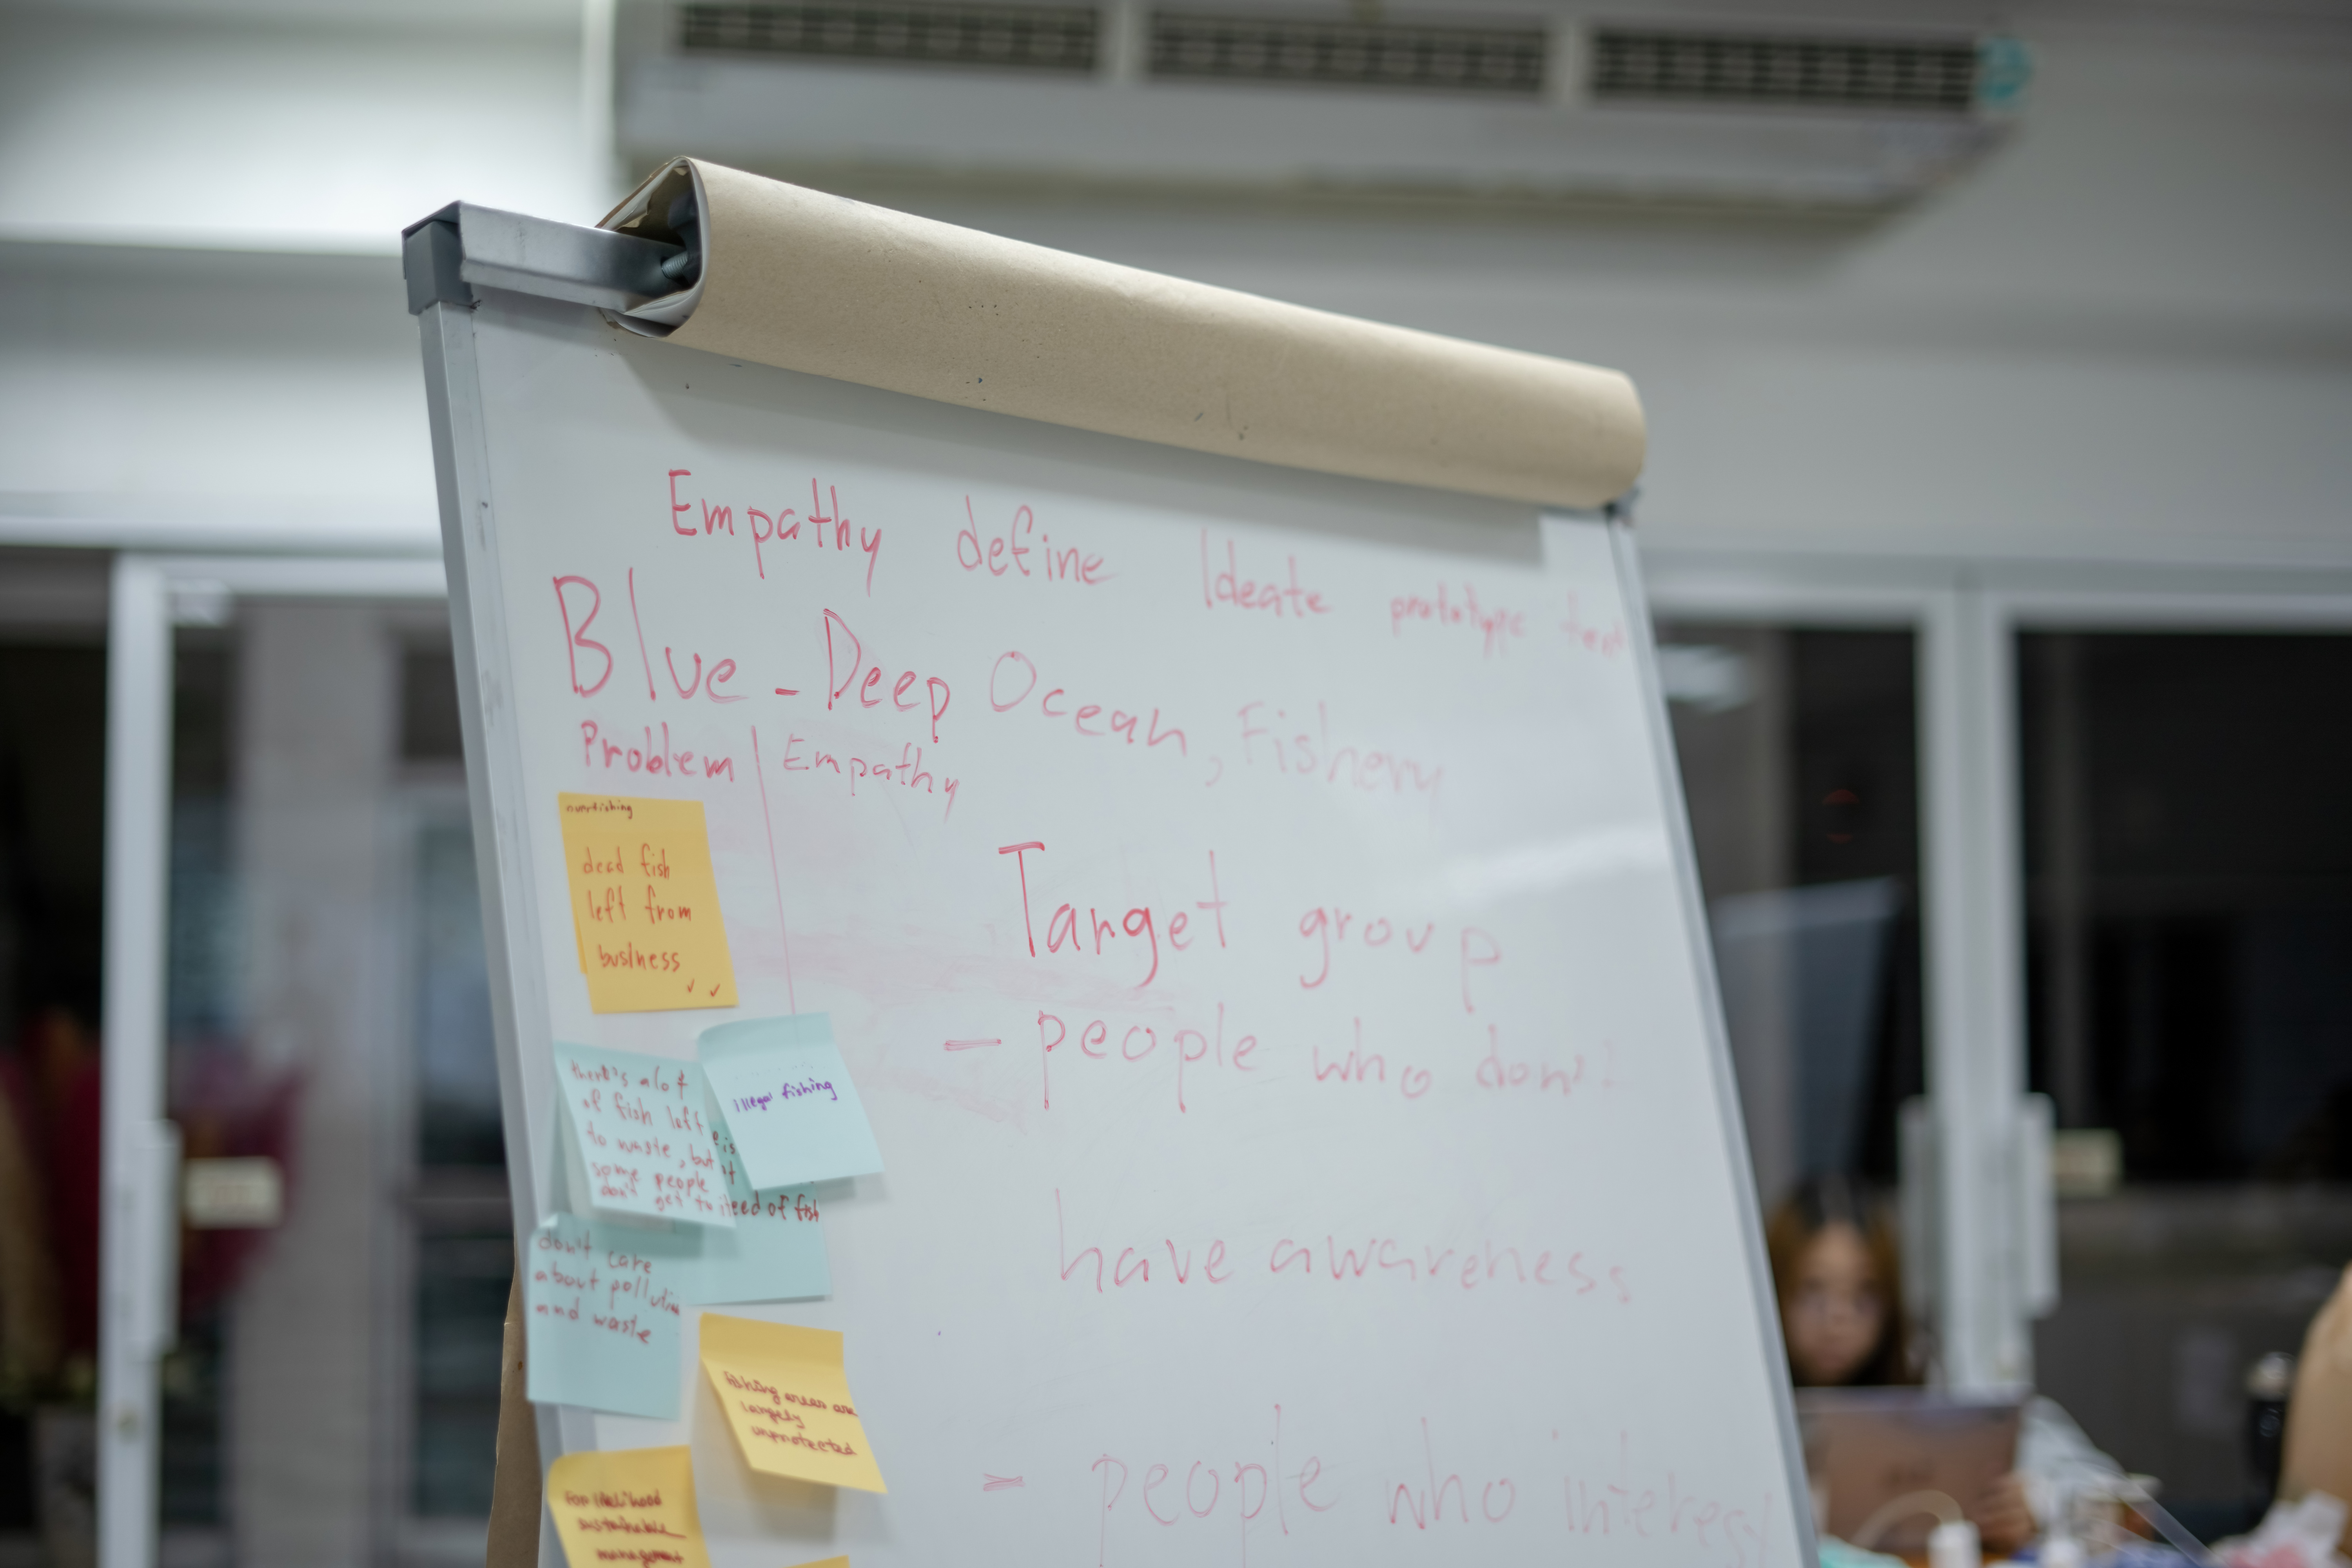 Empathy define Ideate prototype test
Blue - Deep Ocean, Fishery
Problem | Empathy
overfishing
dead fish
left from
business
there's a lot
of fish left
to waste, but
some people
don't get to
illegal fishing
e is
eed of fish
don't care
about pollution
and waste
Fishing areas are
largely
unprotected
For livelihood
sustainable
management
Target group
- people who don't
have awareness
- people who interest